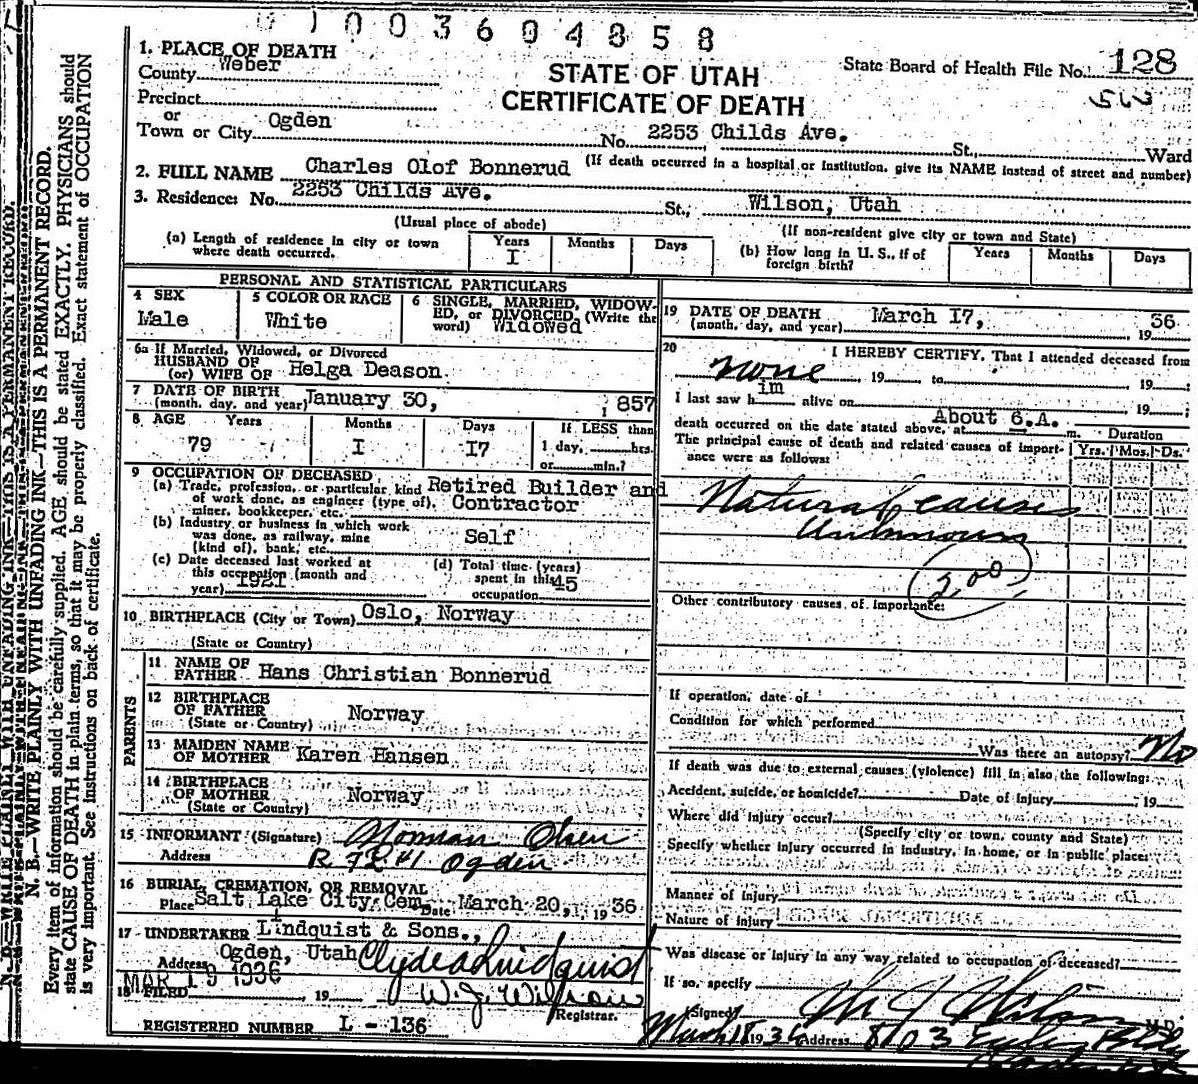 1003604858
1. PLACE OF DEATH
County Weber
STATE OF UTAH
CERTIFICATE OF DEATH
State Board of Health File No. 128
Precinct
or
Town or City Ogden No. 2253 Childs Ave. St., Ward
(If death occurred in a hospital or institution, give its NAME instead of street and number)
2. FULL NAME Charles Olof Bonnerud
3. Residence: No. 2253 Childs Ave. St., Wilson, Utah
(Usual place of abode) (If non-resident give city or town and State)
(a) Length of residence in city or town where death occurred. Years I Months Days
(b) How long in U. S., if of foreign birth? Years Months Days
PERSONAL AND STATISTICAL PARTICULARS
4 SEX Male
5 COLOR OR RACE White
6 SINGLE, MARRIED, WIDOWED, or DIVORCED. (Write the word) Widowed
6a If Married, Widowed, or Divorced
HUSBAND OF
(or) WIFE OF Helga Deason
7 DATE OF BIRTH
(month, day, and year) January 30, 1857
8 AGE Years 79 Months I Days I7 If LESS than 1 day, hrs. or min.?
9 OCCUPATION OF DECEASED
(a) Trade, profession, or particular kind of work done, as engineer (type of), miner, bookkeeper, etc. Retired Builder and Contractor
(b) Industry or business in which work was done, as railway, mine (kind of), bank, etc. Self
(c) Date deceased last worked at this occupation (month and year) 1921
(d) Total time (years) spent in this occupation 45
10 BIRTHPLACE (City or Town) Oslo, Norway
(State or Country)
PARENTS
11 NAME OF FATHER Hans Christian Bonnerud
12 BIRTHPLACE OF FATHER Norway
(State or Country)
13 MAIDEN NAME OF MOTHER Karen Hansen
14 BIRTHPLACE OF MOTHER Norway
(State or Country)
15 INFORMANT (Signature) Norman Olsen
Address Ogden
16 BURIAL, CREMATION, OR REMOVAL
Place Salt Lake City Cem. Date March 20, 1936
17 UNDERTAKER Lindquist & Sons.,
Address Ogden, Utah Clyde A Lindquist
MAR 19 1936
18 FILED , 19 W. J. Wilson
Registrar.
REGISTERED NUMBER L - 136
19 DATE OF DEATH
(month, day, and year) March I7, 1936
20 I HEREBY CERTIFY, That I attended deceased from
none , 19 to , 19 ;
I last saw him alive on , 19 ;
death occurred on the date stated above, at About 6.A. m.
The principal cause of death and related causes of importance were as follows:
Duration
Yrs. Mos. Ds.
Natural causes
Unknown
2.00
Other contributory causes of importance:
If operation, date of
Condition for which performed
Was there an autopsy? No
If death was due to external causes (violence) fill in also the following:
Accident, suicide, or homicide? Date of injury , 19
Where did injury occur?
(Specify city or town, county and State)
Specify whether injury occurred in industry, in home, or in public place:
Manner of injury
Nature of injury
Was disease or injury in any way related to occupation of deceased?
If so, specify
(Signed) W J Wilson M.D.
March 18 1936 Address 803 Bldg
N. B.—WRITE PLAINLY WITH UNFADING INK—THIS IS A PERMANENT RECORD.
Every item of information should be carefully supplied. AGE should be stated EXACTLY. PHYSICIANS should
state CAUSE OF DEATH in plain terms, so that it may be properly classified. Exact statement of OCCUPATION
is very important. See instructions on back of certificate.